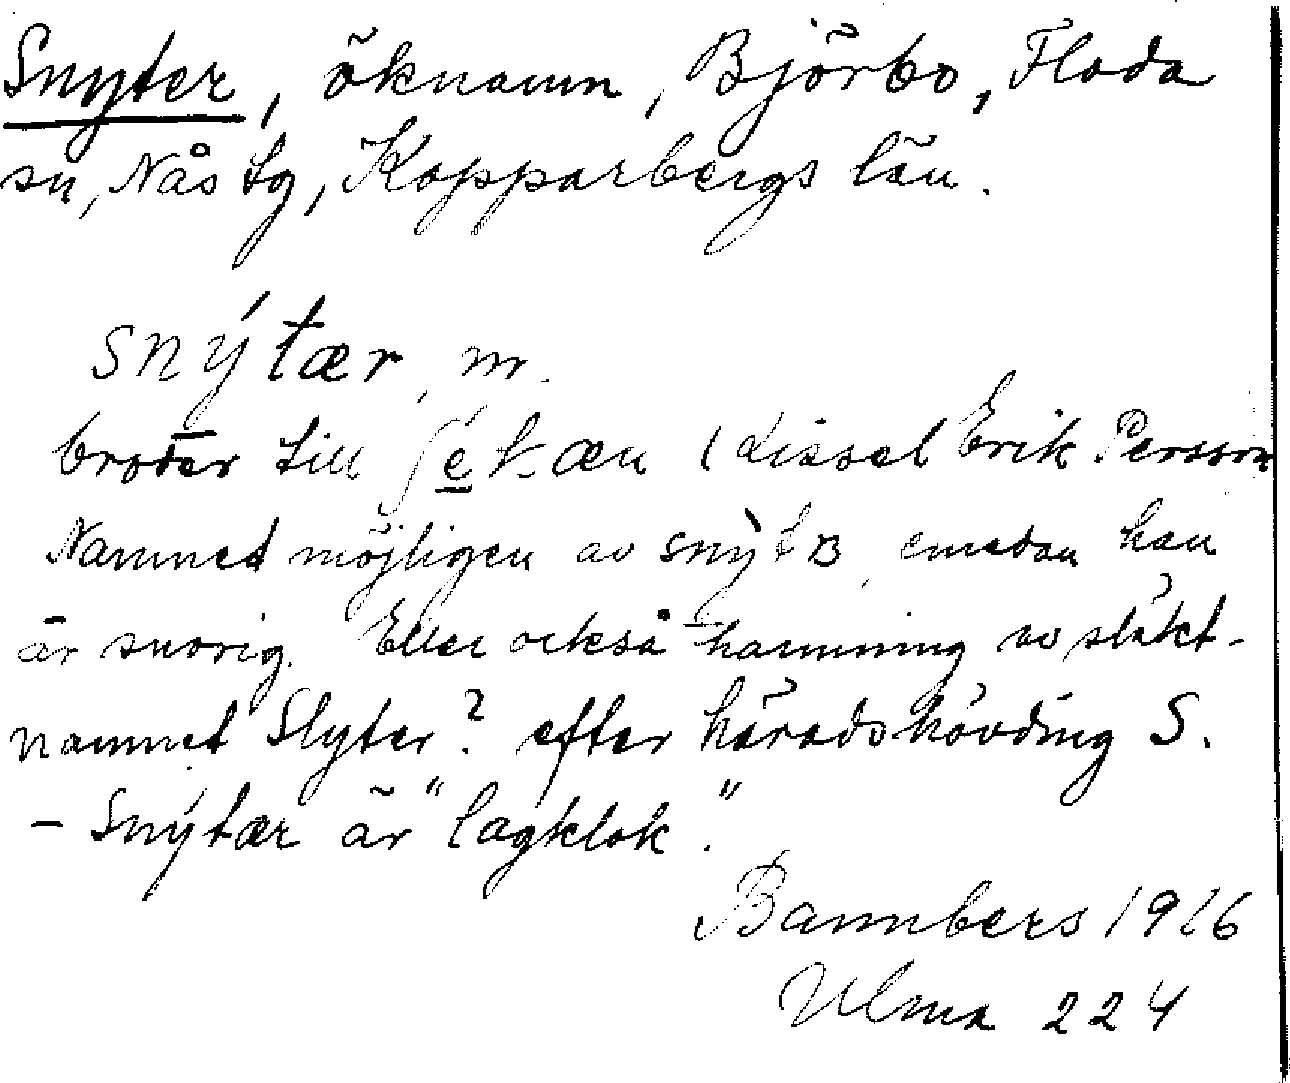 Snyter, öknamn, Björbo, Floda
sn, Nås tg, Kopparbergs län.
snýtær, m.
broder till ʃét-æn (Lissel Erik Persson
Namnet möjligen av snỳtB, emedan han
är snorig. Eller också härmning av släkt-
namnet Slyter? efter häradshövding S.
- Snýtær är "lagklok."
Bannbers 1916
Ulma 224